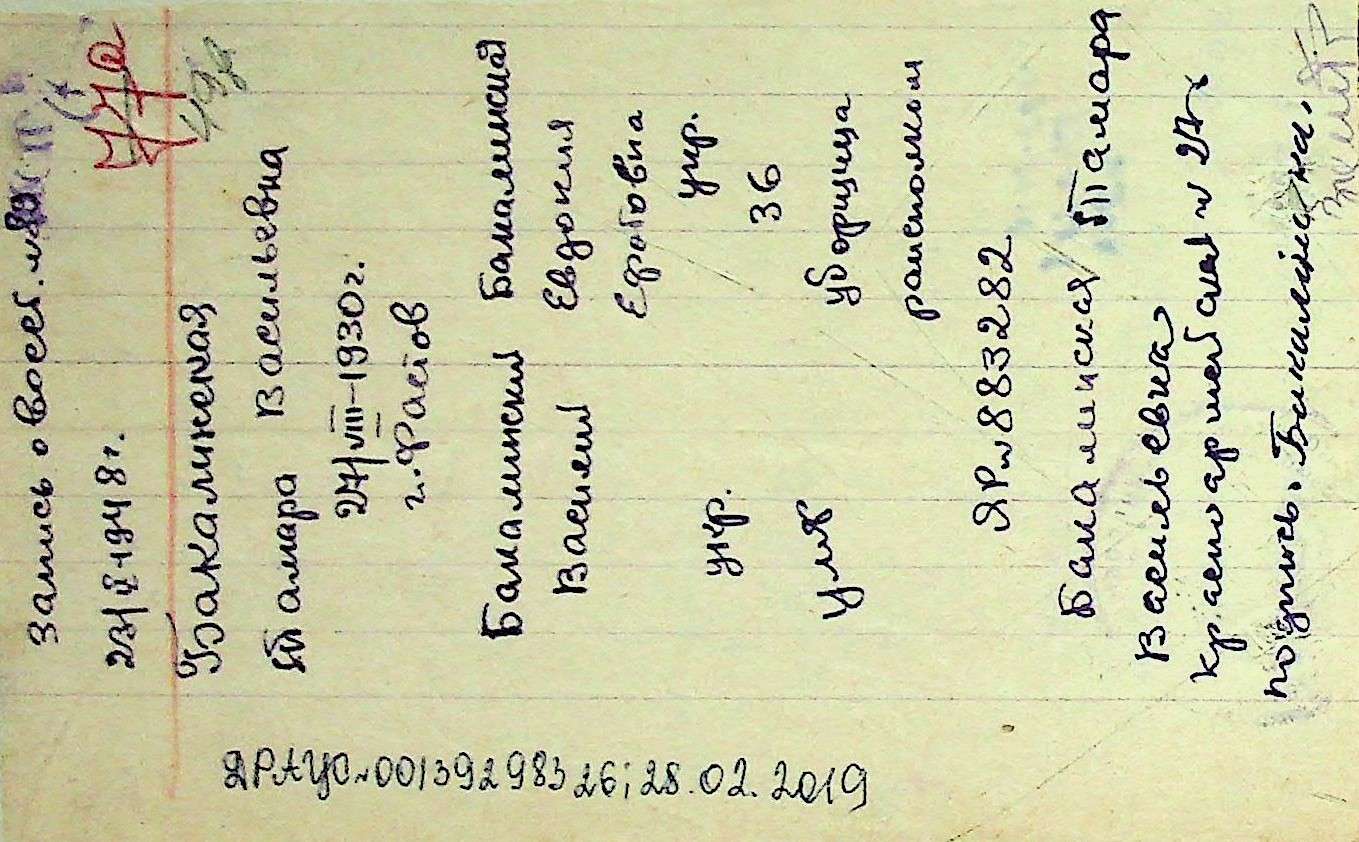 Запись о восст. №80
23/V-1948 г.
Бакалинская
Тамара Васильевна
27/VIII-1930 г.
г. Фастов
Бакалинский
Василий
укр.
Бакалинская
Евдокия
укр.
36
уборщица
райисполком
ЯР № 883282
Бакалинская Тамара
Васильевна
Красноармейская № 27
подпись. Бакалинская.
ДРАЦС № 00139298326; 28.02.2019